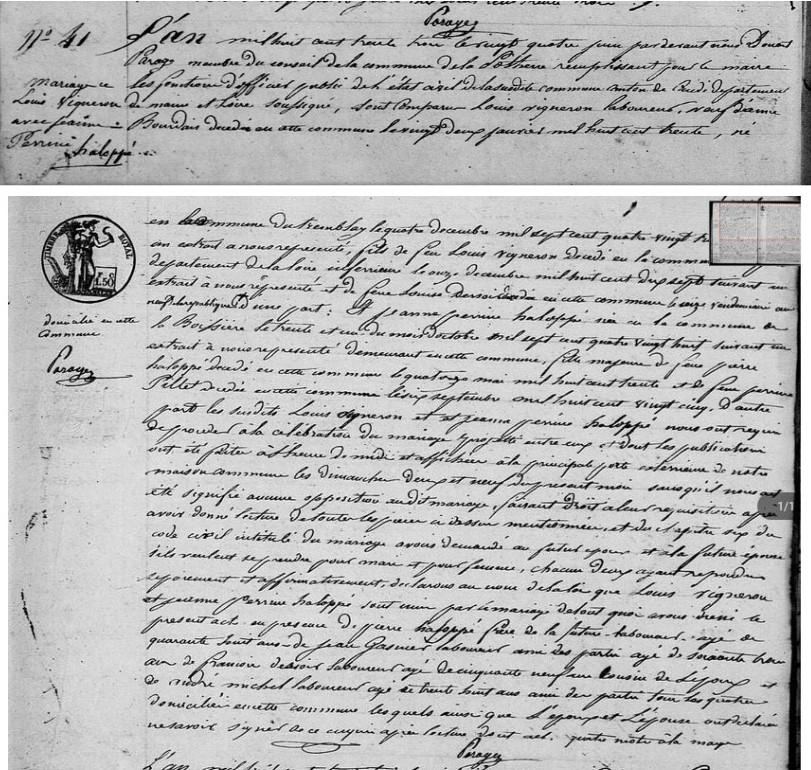 Parage
N° 41 L'an mil huit cent trente trois le vingt quatre juin par devant nous Douet
Parage membre du conseil de la commune de la Potherie remplissant pour le maire
mariage de les fonctions d'officier public de l'état civil de la susdite commune canton de Candé departement
Louis Vigneron de maine et Loire soussigné, sont comparu Louis vigneron laboureur, veuf d'anne
avec jeanne Bourdais decedée en cette commune le vingt deux janvier mil huit cent trente, né
Perrine
haloppé
en la commune du tremblay le quatre decembre mil sept cent quatre vingt
un extrait a nous representé, fils de feu Louis vigneron decedé en la commune
TIMBRE ROYAL
departement de la loire inferieure le onze decembre mil huit cent dix sept suivant un
extrait à nous representé et de feue Louise Dersoir decedée en cette commune le seize vendemiaire an
neuf republique d'une part; Et jeanne perrine haloppé née en la commune de
domicilié en cette
commune
la Boissiere le trente et un du mois d'octobre mil sept cent quatre vingt huit suivant un
extrait à nous representé demeurant en cette commune, fille majeure de feu pierre
Parage
haloppé decedé en cette commune le quatorze mai mil huit cent trente et de feue perrine
Pellet decedée en cette commune le six septembre mil huit cent vingt cinq, d'autre
part les susdits Louis vigneron et jeanne perrine haloppé nous ont requis
de proceder à la célébration du mariage projetté entre eux et dont les publications
ont été faites à l'heure de midi et affichées à la principale porte exterieure de notre
maison commune les dimanches deux et neuf du present mois sans qu'il nous ait
été signifié aucune opposition audit mariage, faisant droit à leur requisition après
avoir donné lecture de toutes les pieces ci dessus mentionnées, et du chapitre six du
code civil intitulé du mariage avons demandé au futur epoux et à la future epouse
s'ils veulent se prendre pour mari et pour femme, chacun d'eux ayant repondu
séparement et affirmativement, declarons au nom de la loi que Louis vigneron
et jeanne perrine haloppé sont unis par le mariage de tout quoi avons dressé le
present acte en presence de pierre haloppé frere de la future laboureur agé de
quarante huit ans de jean Gasnier laboureur ami des parties agé de soixante trois
ans de francois dersoir laboureur agé de cinquante neuf ans cousin de l'epoux et
de andré michel laboureur agé de trente huit ans ami des parties tous les quatre
domiciliés en cette commune les quels ainsi que l'epoux et l'epouse ont déclaré
ne savoir signer de ce enquis après lecture dont acte
Parage
L'an mil
-1/1